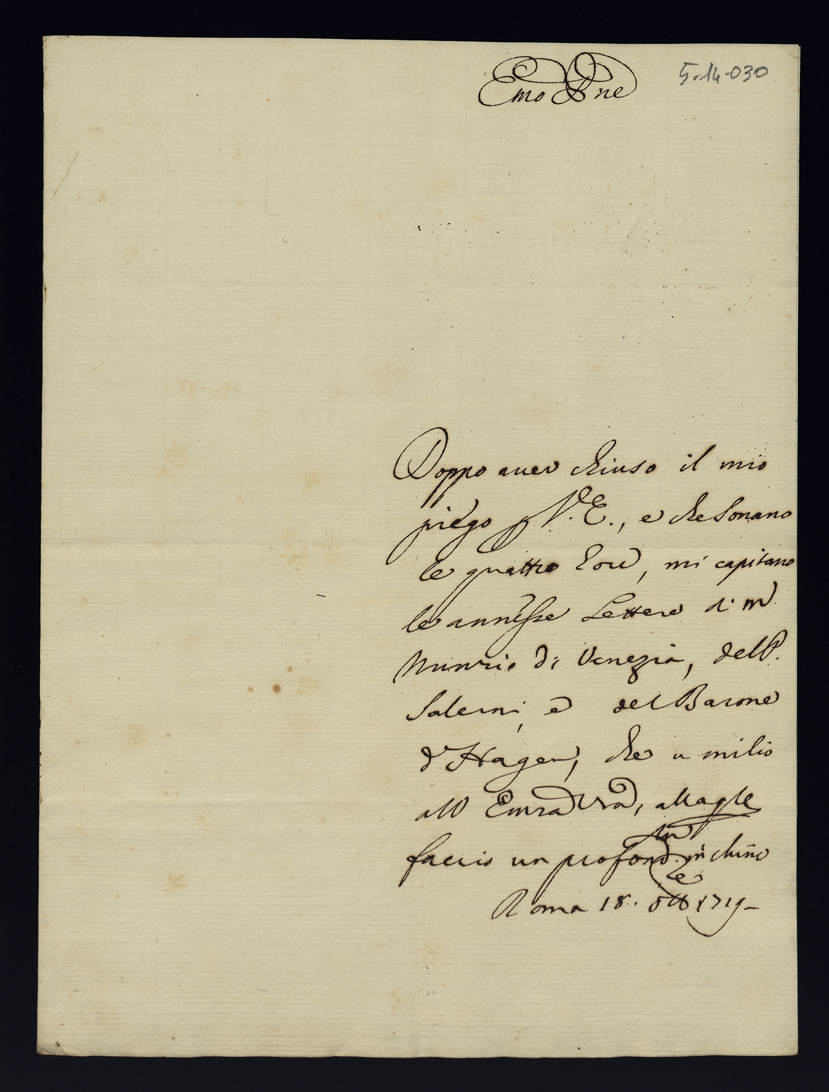 Emo Pne
5-14-030
Doppo aver chiuso il mio
piego p V.E., e che Sonano
le quattro hore, mi capitano
le annesse Lettere di m
Nunzio di Venezia, del P.
Salerni, e del Barone
d'Hagen, che umilio
all Emza Vra, alla qle
faccio un profond inchino
Roma 18. ott 1719